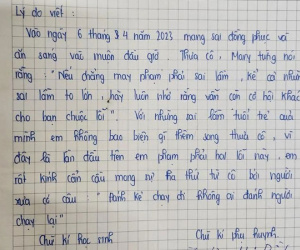 Lý do viết :
Vào ngày 6 tháng 4 năm 2023 mang sai đồng phục và
ăn sáng vào muộn đầu giờ. Thưa cô, Mary từng nói
rằng : "Nếu chẳng may phạm phải sai lầm, kể cả những
sai lầm to lớn, hãy luôn nhớ rằng vẫn còn cơ hội khác
cho bạn chuộc lỗi". Với những sai lầm tuổi trẻ quá
mình em không bao biện gì thêm song thưa cô, vì
đây là lần đầu tiên em phạm phải hai lỗi này, em
rất kính cẩn cầu mong sự tha thứ từ cô bởi người
xưa có câu : "Đánh kẻ chạy đi không ai đánh người
chạy lại"
Chữ kí học sinh Chữ kí phụ huynh